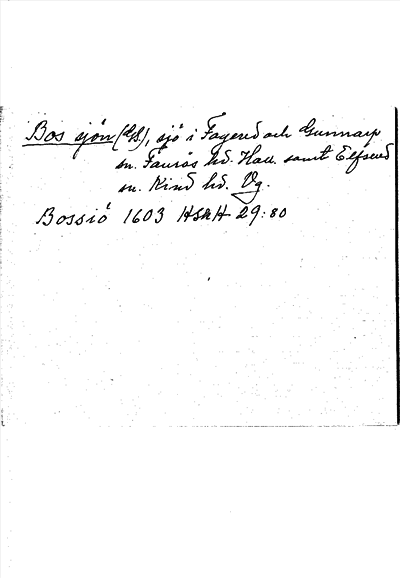 Bos sjön (GS), sjö i Fagered och Gunnarp
sn. Faurås hd. Hall. samt Elfsered
sn. Kind hd. Vg.
Bossiö 1603 HSkH 29:80